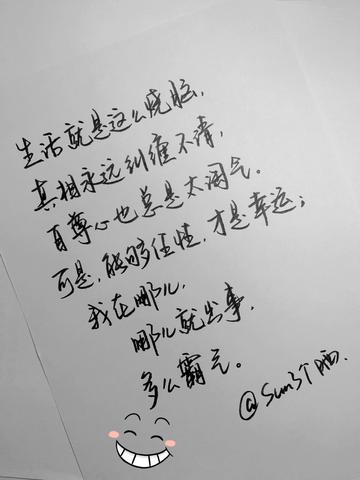 生活就是这么烧脑，
真相永远纠缠不清，
自尊心也总是太淘气。
可是，能够任性，才是幸运；
我在哪儿，
哪儿就出事，
多么霸气。
@Sun3个晒